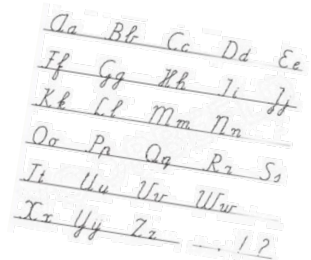 Aa Bb Cc Dd Ee
Ff Gg Hh Ii Jj
Kk Ll Mm Nn
Oo Pp Qq Rr Ss
Tt Uu Vv Ww
Xx Yy Zz — . ! ?